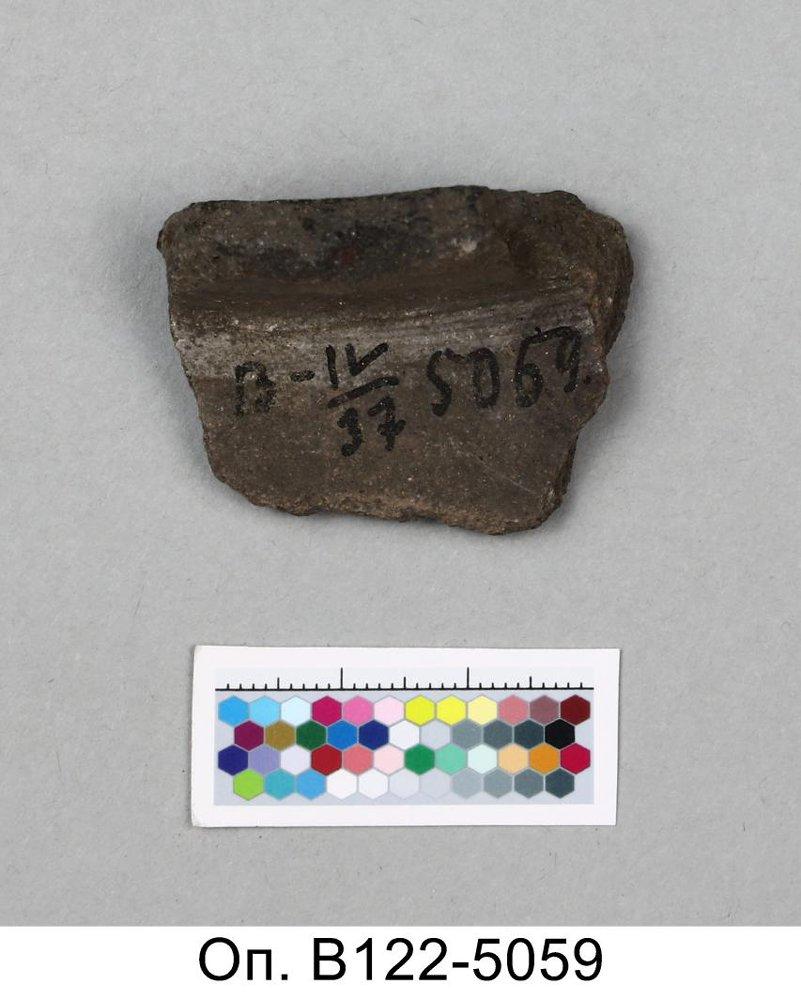 В-IV/37 5069.
Оп. В122-5059